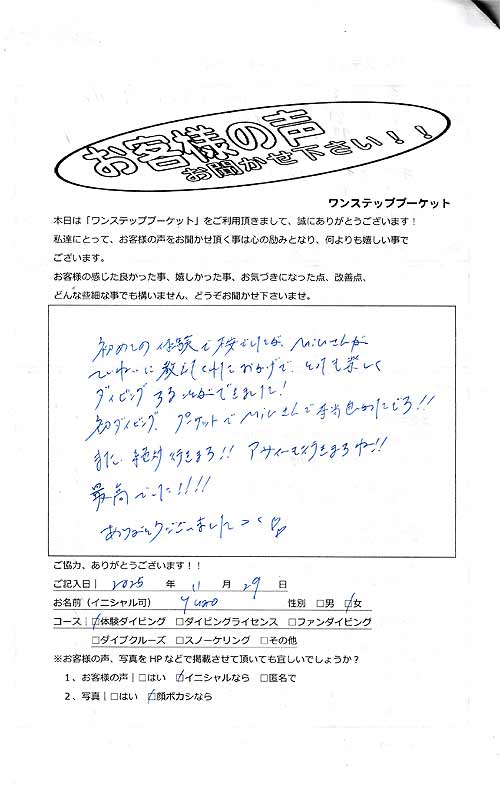 お客様の声
お聞かせ下さい！！
ワンステッププーケット
本日は「ワンステッププーケット」をご利用頂きまして、誠にありがとうございます！
私達にとって、お客様の声をお聞かせ頂く事は心の励みとなり、何よりも嬉しい事で
ございます。
お客様の感じた良かった事、嬉しかった事、お気づきになった点、改善点、
どんな些細な事でも構いません、どうぞお聞かせ下さいませ。
初めての体験で でしたが、Miuさんが
ていねいに教えてくれたおかげで、とても楽しく
ダイビングすることができました！
初ダイビング、プーケットでMiuさんで本当良かったです!!
また、絶対行きます!! アサイーも行きますね!!
最高でした!!!!
ありがとうございました
ご協力、ありがとうございます！！
ご記入日｜ 2025 年 11 月 29 日
お名前（イニシャル可） Yuzo 性別 □男 ☑女
コース｜☑体験ダイビング □ダイビングライセンス □ファンダイビング
□ダイブクルーズ □スノーケリング □その他
※お客様の声、写真をHPなどで掲載させて頂いても宜しいでしょうか？
１、お客様の声｜□はい ☑イニシャルなら □匿名で
２、写真｜□はい ☑顔ボカシなら